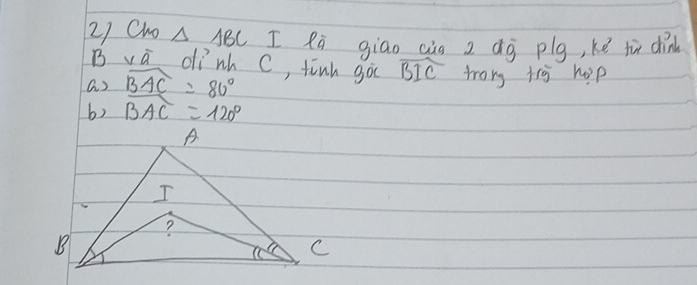 2) Cho Δ ABC I là giao của 2 đg plg, kẻ từ đỉnh
B và đỉnh C, tính góc BIC trong trg hợp
a) BAC = 80°
b) BAC = 120°
A
I
?
B
C